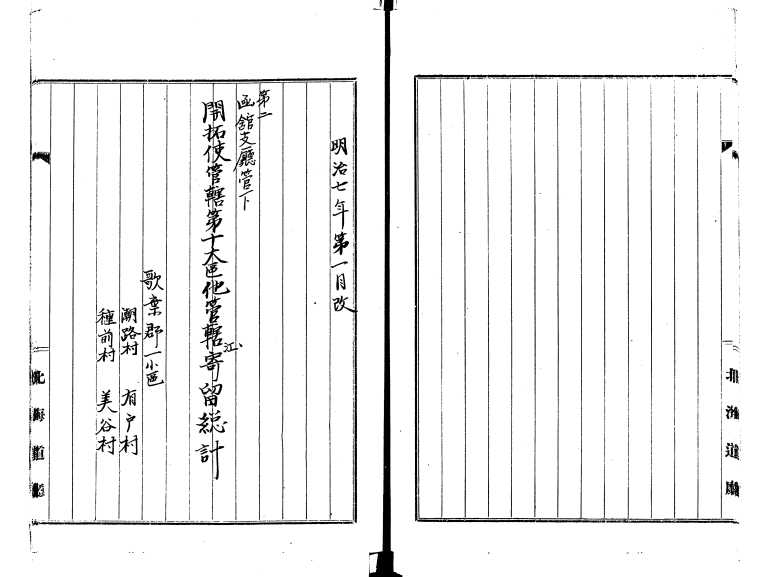 明治七年第一月改
第二
函館支廳管下
開拓使管轄第十大區他管轄江寄留総計
歌棄郡一小區
潮路村 有戸村
種前村 美谷村
北海道廳